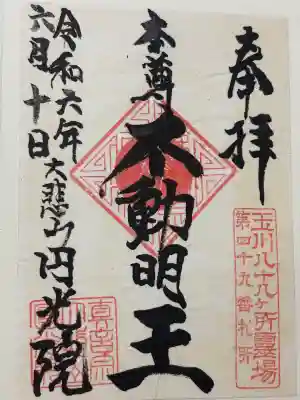 奉拝
玉川八十八ヶ所霊場
第四十九番札所
本尊
不動明王
令和六年
六月十日
大悲山円光院